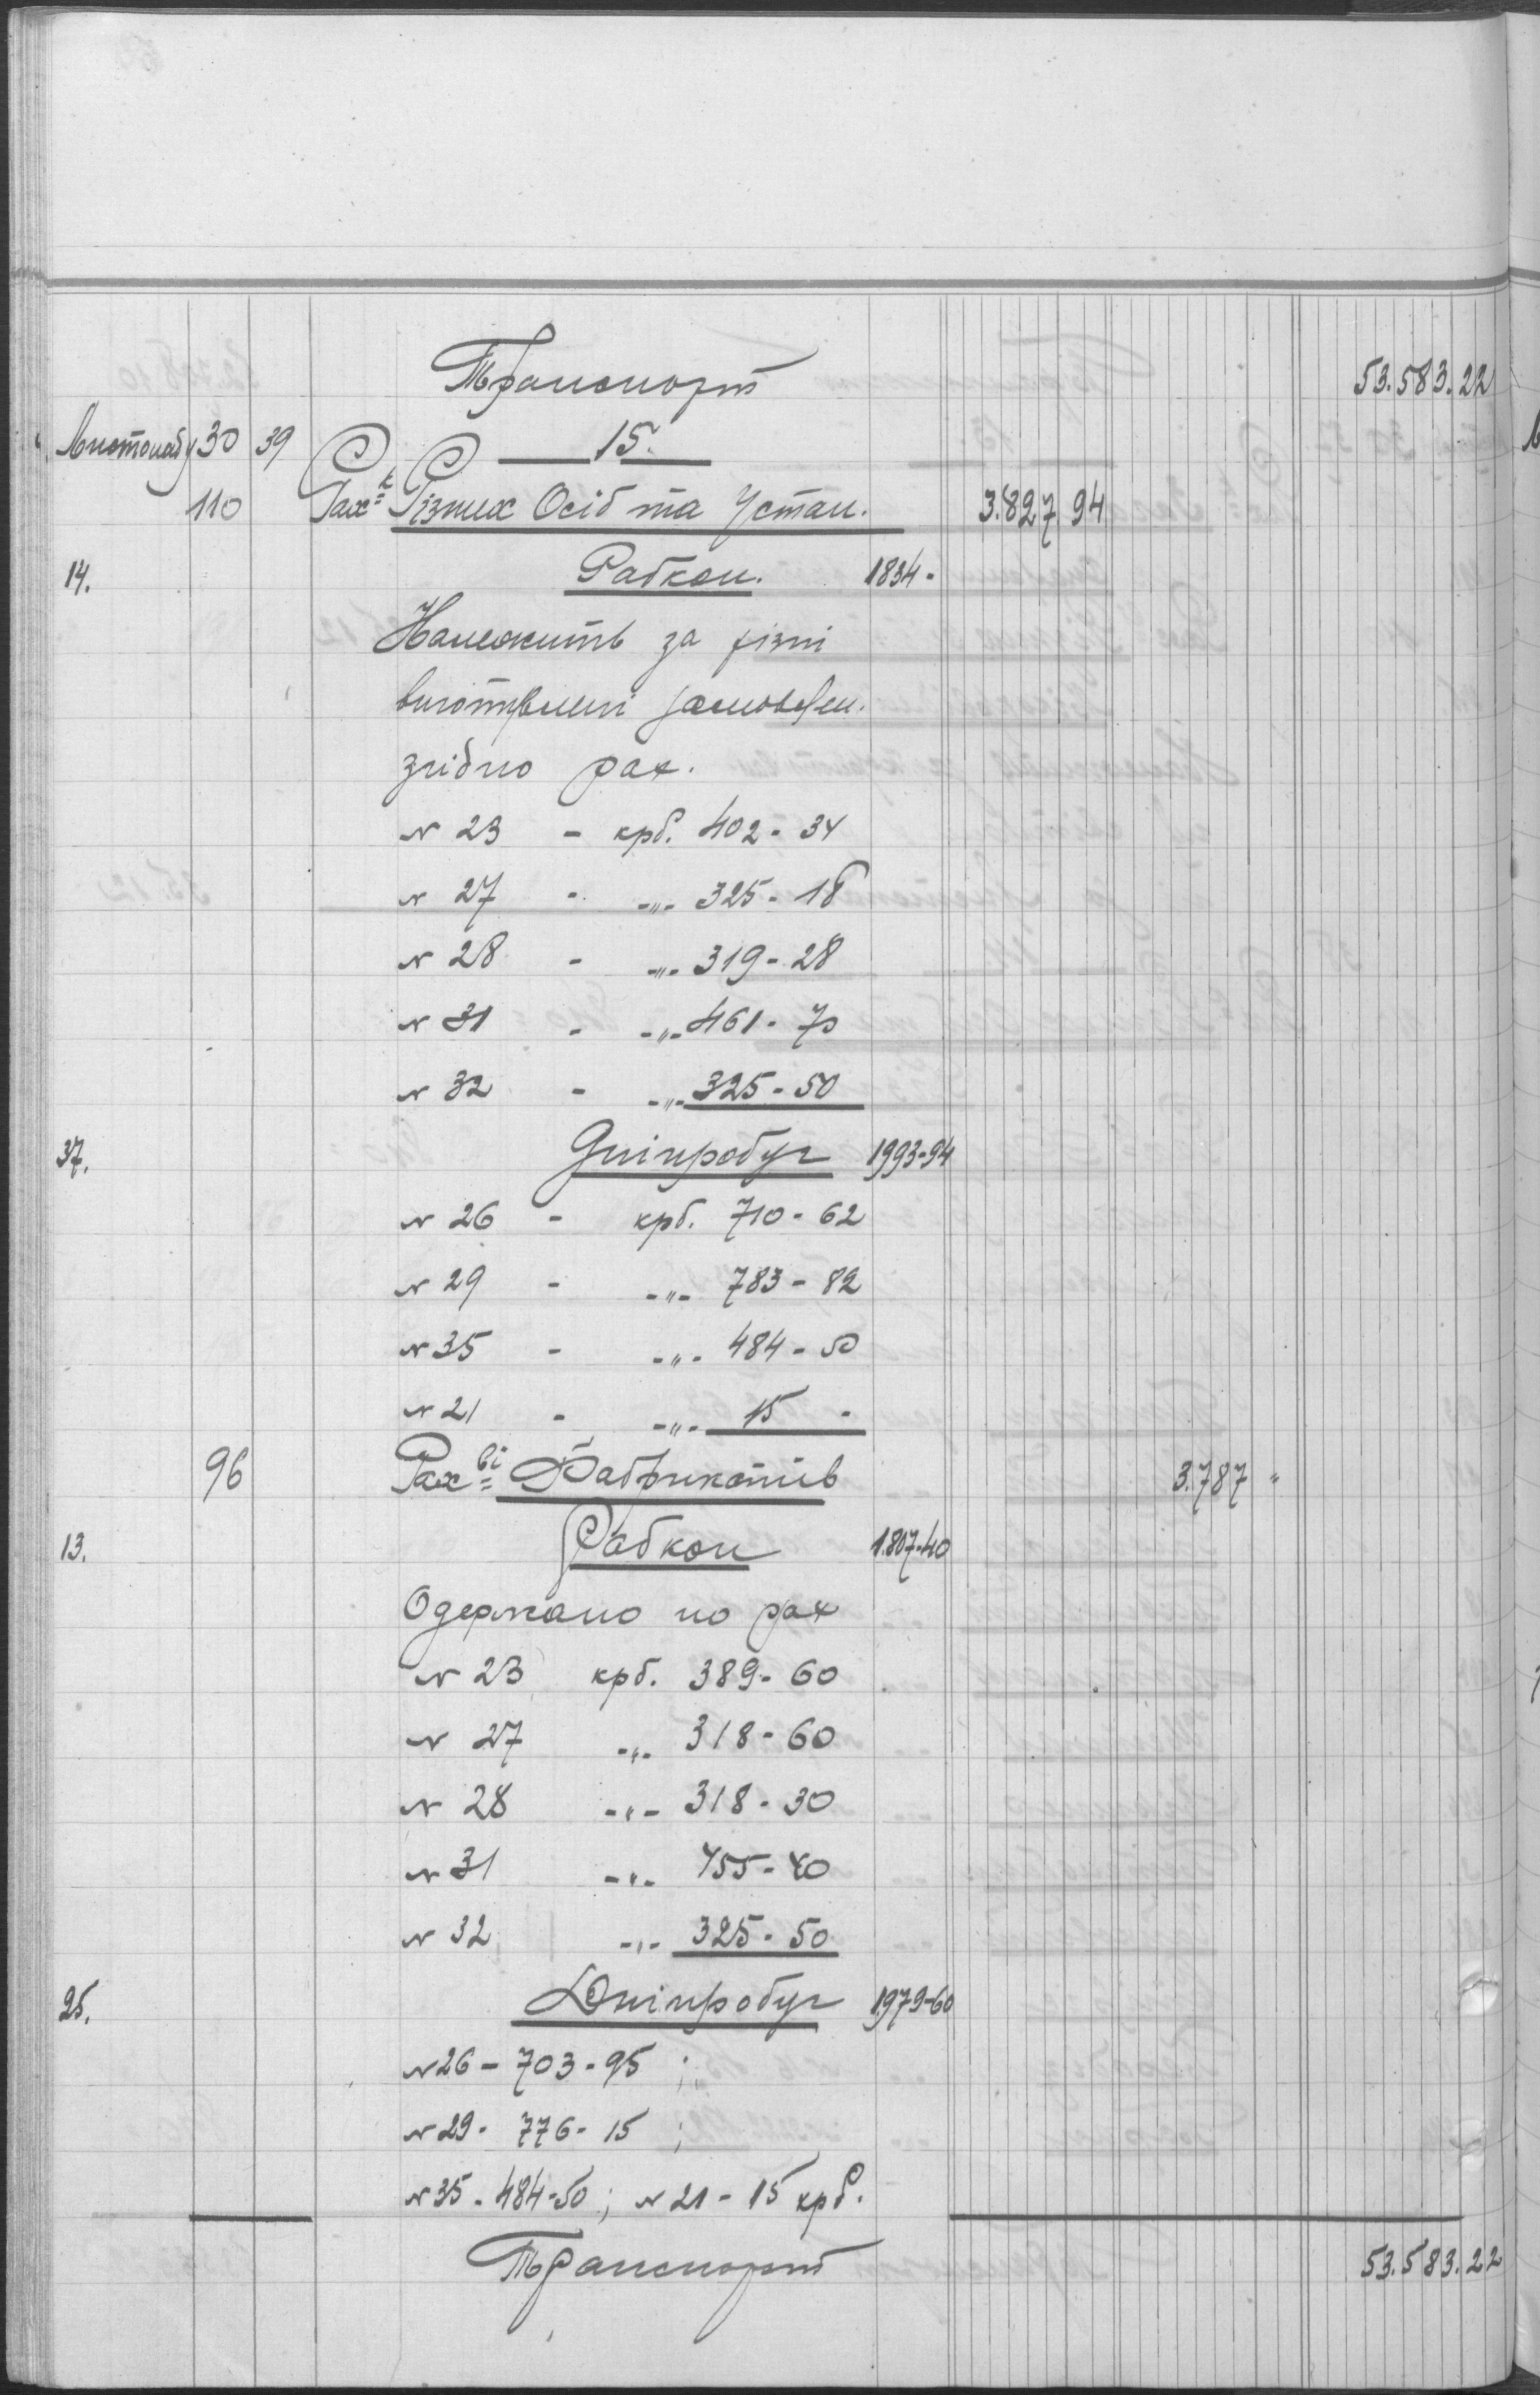 Транспорт 53.583.22
Листопаду 30 39 15.
110 Рах-к Різних Осіб та Устан. 3.827 94
14. Рабкон. 1834 -
Належить за різні
виготовлені замовлен.
згідно рах.
№ 23 - крб. 402 - 34
№ 27 - -"- 325 - 18
№ 28 - -"- 319 - 28
№ 31 - -"- 461 - 70
№ 32 - -"- 325 - 50
37. Дніпробуг 1993-94
№ 26 - крб. 710 - 62
№ 29 - -"- 783 - 82
№ 35 - -"- 484 - 50
№ 21 - -"- 15 -
96 Рах-ві Фабрикатів 3.787 "
13. Рабкон 1.807-40
Одержано по рах
№ 23 крб. 389 - 60
№ 27 -"- 318 - 60
№ 28 -"- 318 - 30
№ 31 -"- 455 - 40
№ 32 -"- 325 - 50
25. Дніпробуг 1979-60
№ 26 - 703 - 95 ;
№ 29 - 776 - 15 ;
№ 35 - 484-50 ; № 21 - 15 крб.
Транспорт 53.583.22